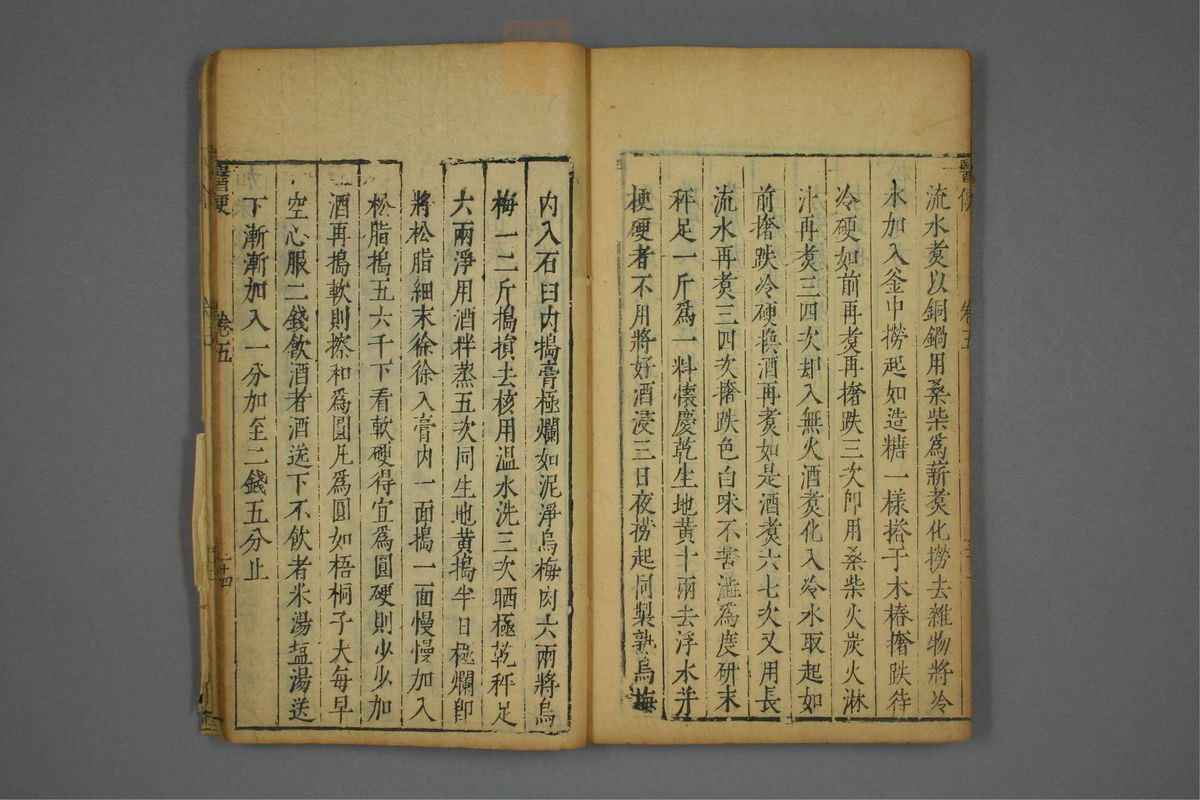 流水煑以銅鍋用桑柴爲薪煑化撈去雜物將冷
水加入釜中撈起如造糖一樣搭于木樁撦跌待
冷硬如前再煑再撦跌三次卽用桑柴火炭火淋
汁再煑三四次却入無火酒煑化入冷水取起如
前撦跌冷硬換酒再煑如是酒煑六七次又用長
流水再煑三四次撦跌色白味不苦澁爲度研末
秤足一斤爲一料懷慶乾生地黄十兩去浮水并
梗硬者不用將好酒浸三日夜撈起同製熟烏梅
内入石臼内搗膏極爛如泥淨烏梅肉六兩將烏
梅一二斤搗損去核用温水洗三次晒極乾秤足
六兩淨用酒拌蒸五次同生地黄搗半日極爛卽
將松脂細末徐徐入膏内一面搗一面慢慢加入
松脂搗五六千下看軟硬得宜爲圓硬則少少加
酒再搗軟則擦和爲圓凡爲圓如梧桐子大每早
空心服二錢飲酒者酒送下不飲者米湯塩湯送
下漸漸加入一分加至二錢五分止
醫便
卷五
二十四